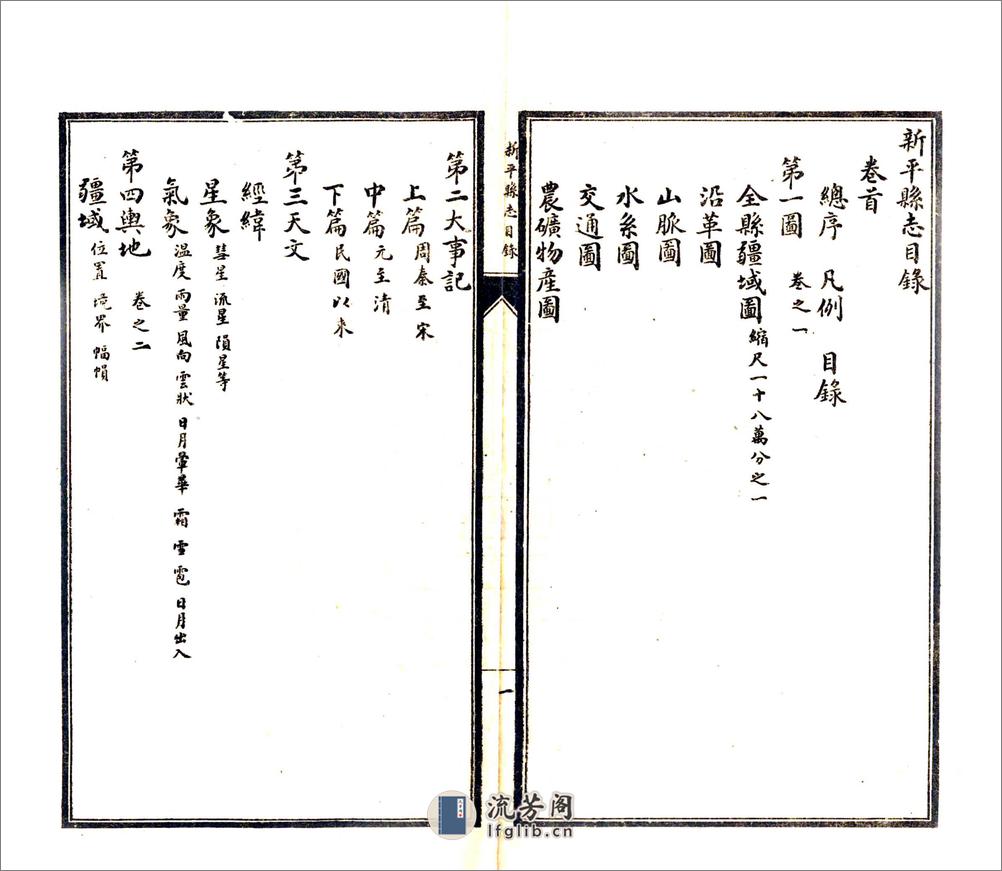 新平縣志目錄
卷首
總序 凡例 目錄
第一圖 卷之一
全縣疆域圖 縮尺一十八萬分之一
沿革圖
山脈圖
水系圖
交通圖
農礦物產圖
新平縣志目錄
一
第二大事記
上篇 周秦至宋
中篇 元至清
下篇 民國以來
第三天文
經緯
星象 彗星 流星 隕星等
氣象 溫度 雨量 風向 雲狀 日月暈華 霜 雪 雹 日月出入
第四輿地 卷之二
疆域 位置 境界 幅幀
流芳阁
lfglib.cn